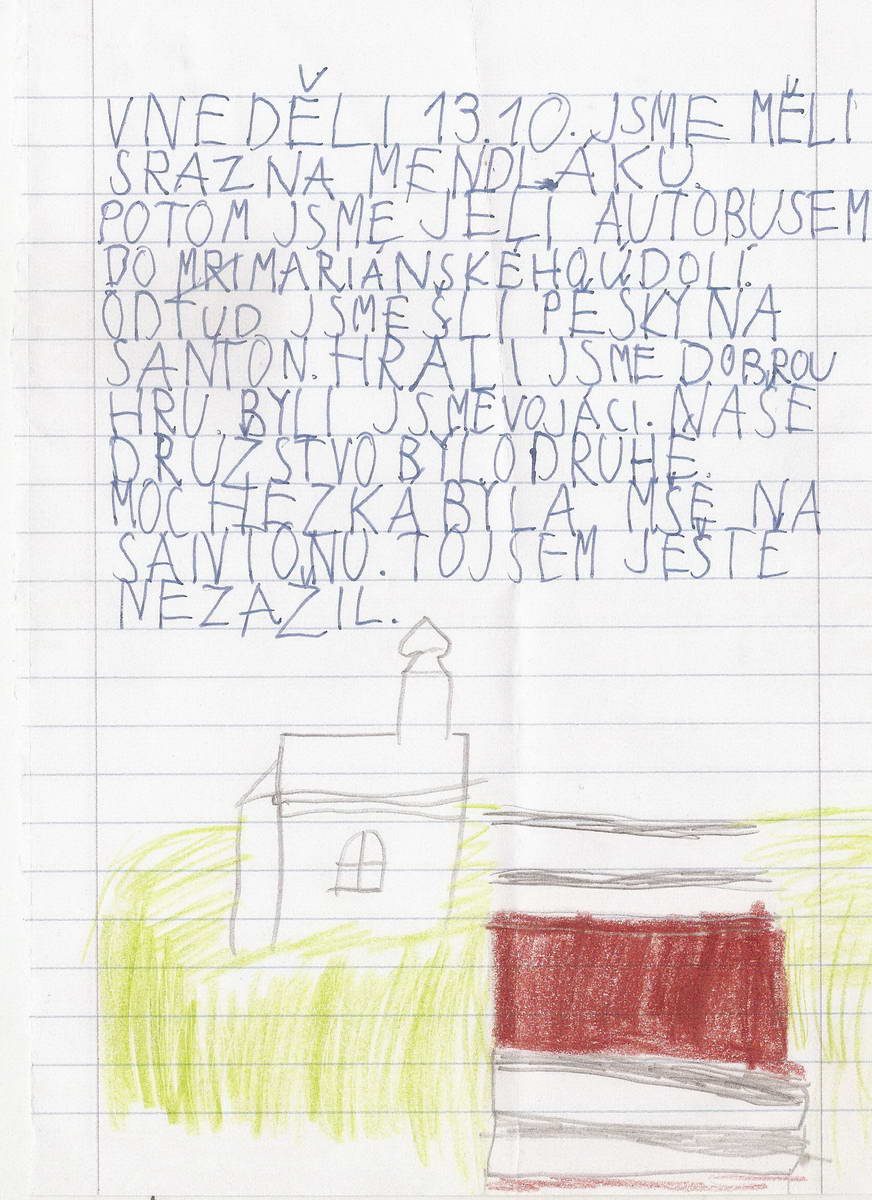 VNEDĚLI 13.10. JSME MĚLI
SRAZ NA MENDLÁKU.
POTOM JSME JELI AUTOBUSEM
DO MARIÁNSKÉHO ÚDOLÍ.
ODTUD JSME ŠLI PĚSKY NA
SANTON. HRÁLI JSME DOBROU
HRU. BYLI JSME VOJÁCI. NAŠE
DRUŽSTVO BYLO DRUHÉ.
MOC HEZKÁ BYLA MŠE NA
SANTONU. TO JSEM JEŠTĚ
NEZAŽIL.